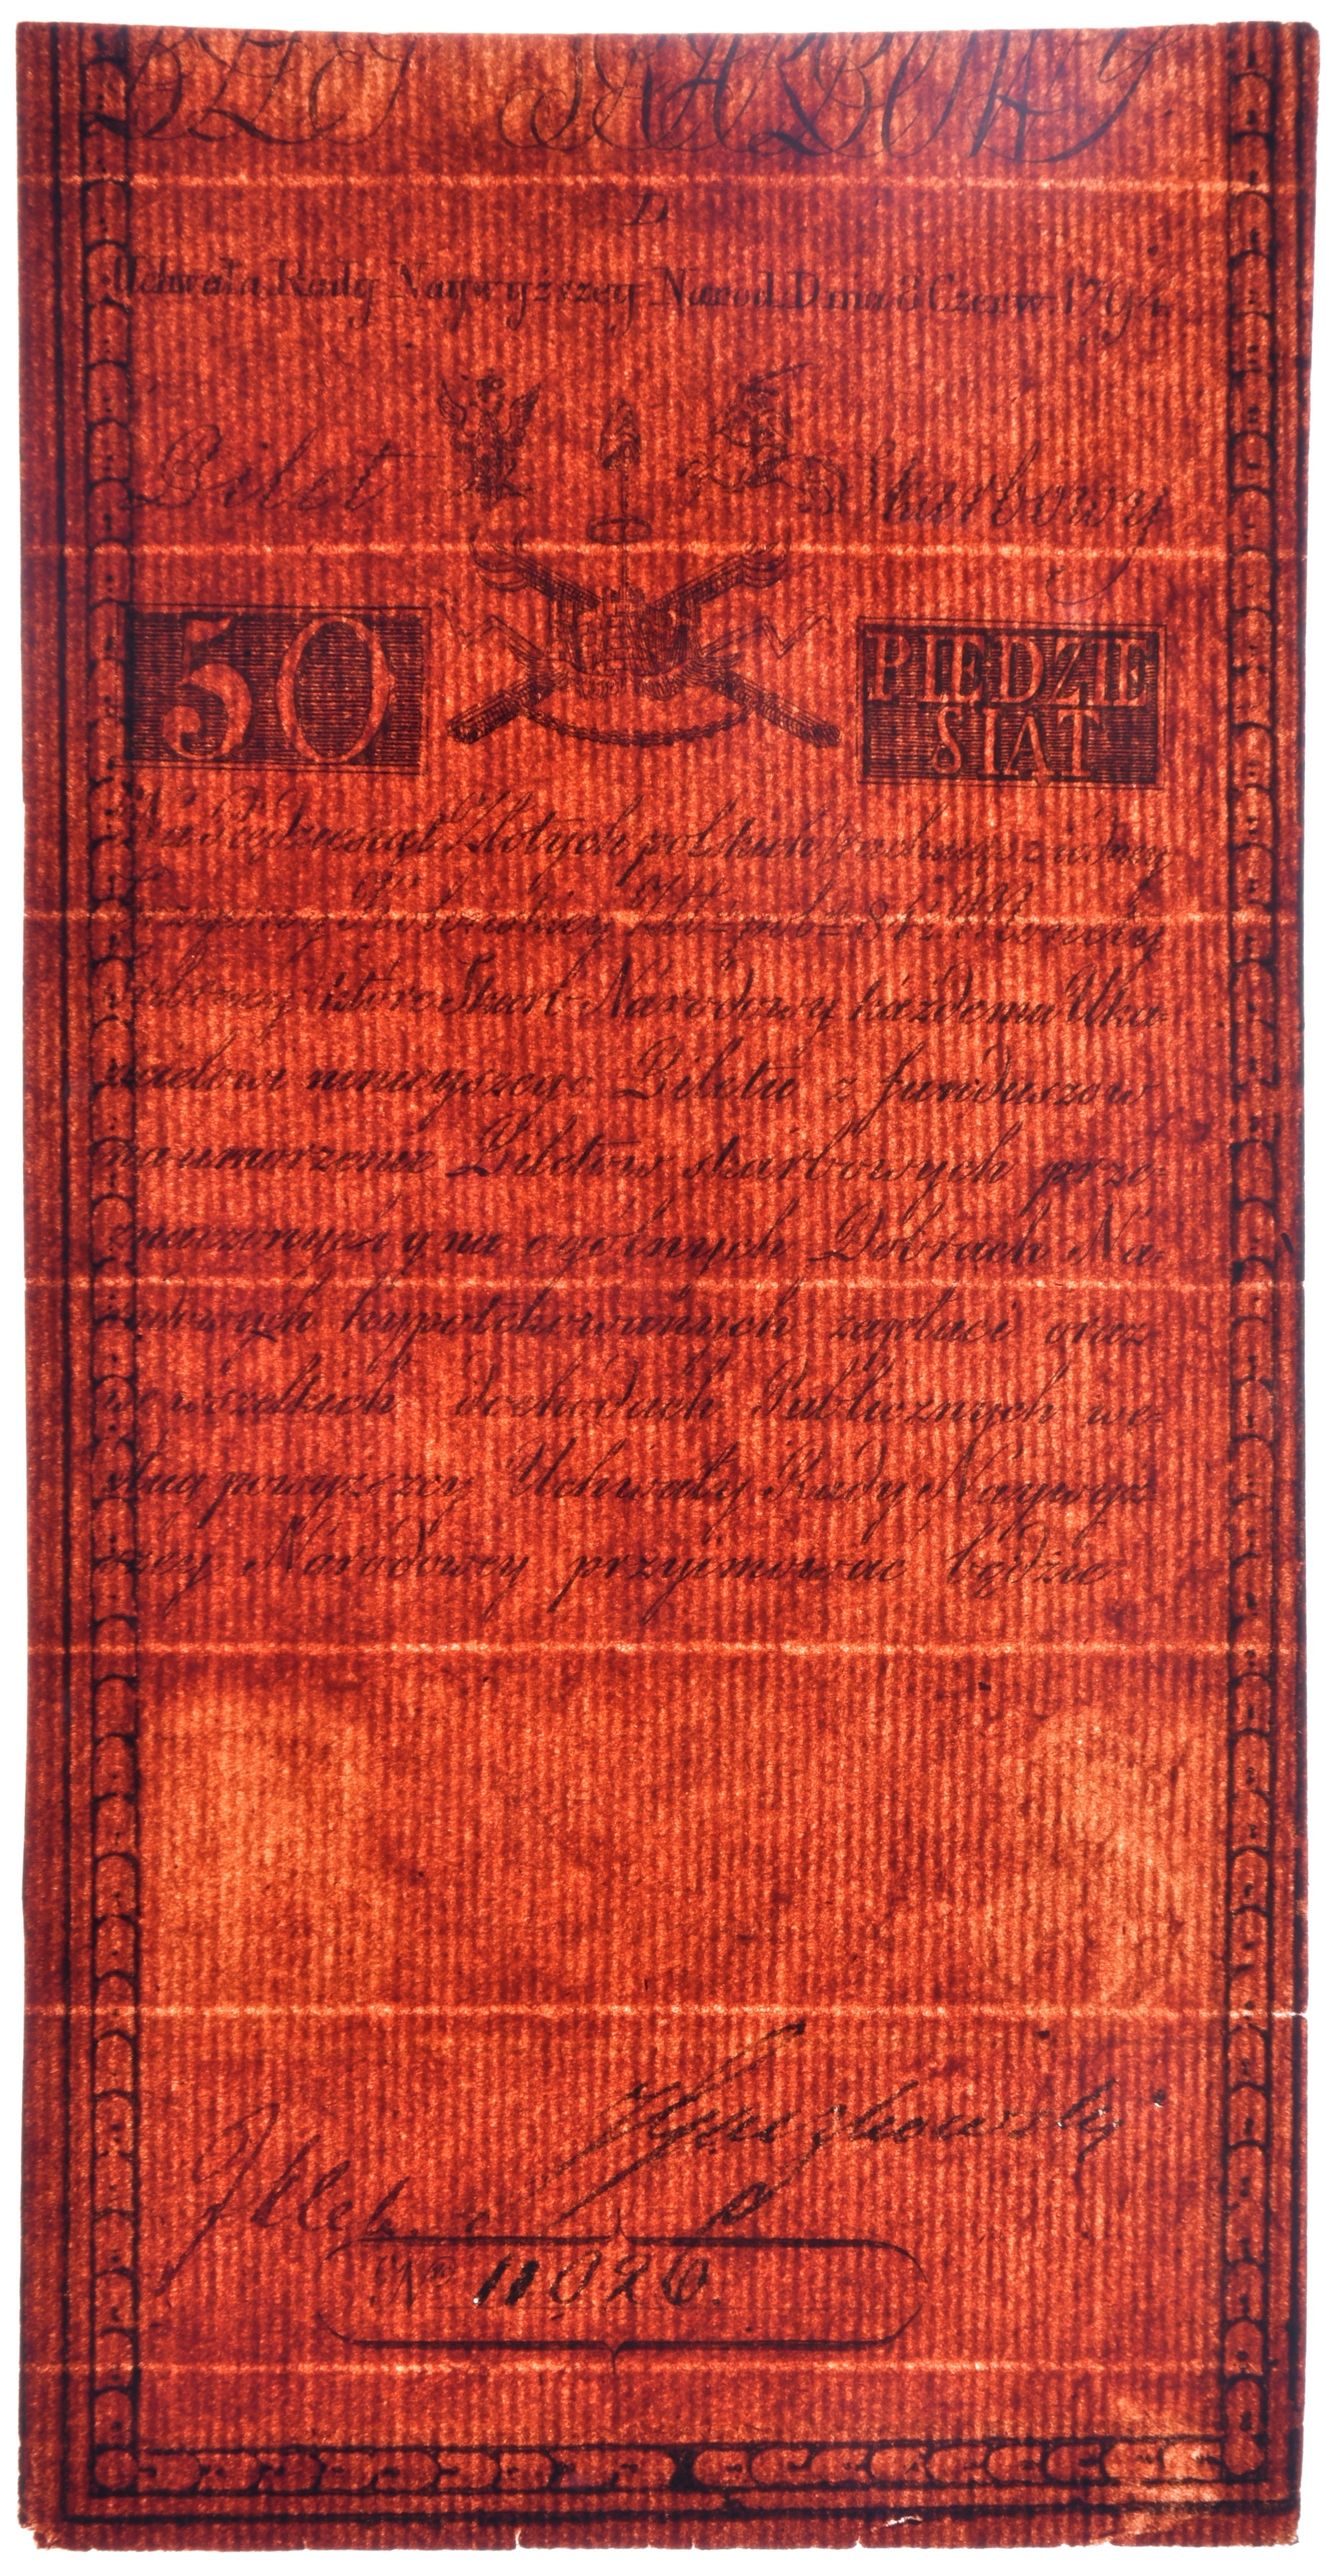 BILET SKARBOWY
D
Uchwała Rady Naywyższey Narod. Dnia 8 Czerw. 1794
Bilet Skarbowy
50
PIĘDZIE
SIĄT
Na Piędziesiąt Złotych polskich rachuiąc z iedney
Grzywny
Kolońskiey które Skarb Narodowy każdemu Uka-
zicielowi ninieyszego Biletu z funduszow
na umorzenie Biletow skarbowych prze-
znaczonych y na ogolnych Dobrach Na-
rodowych hypotekowanych zapłaci oraz
w wszelkich dochodach Publicznych we-
dług powyższey Uchwały Rady Naywyż-
szey Narodowey przyimować będzie
No 11026.